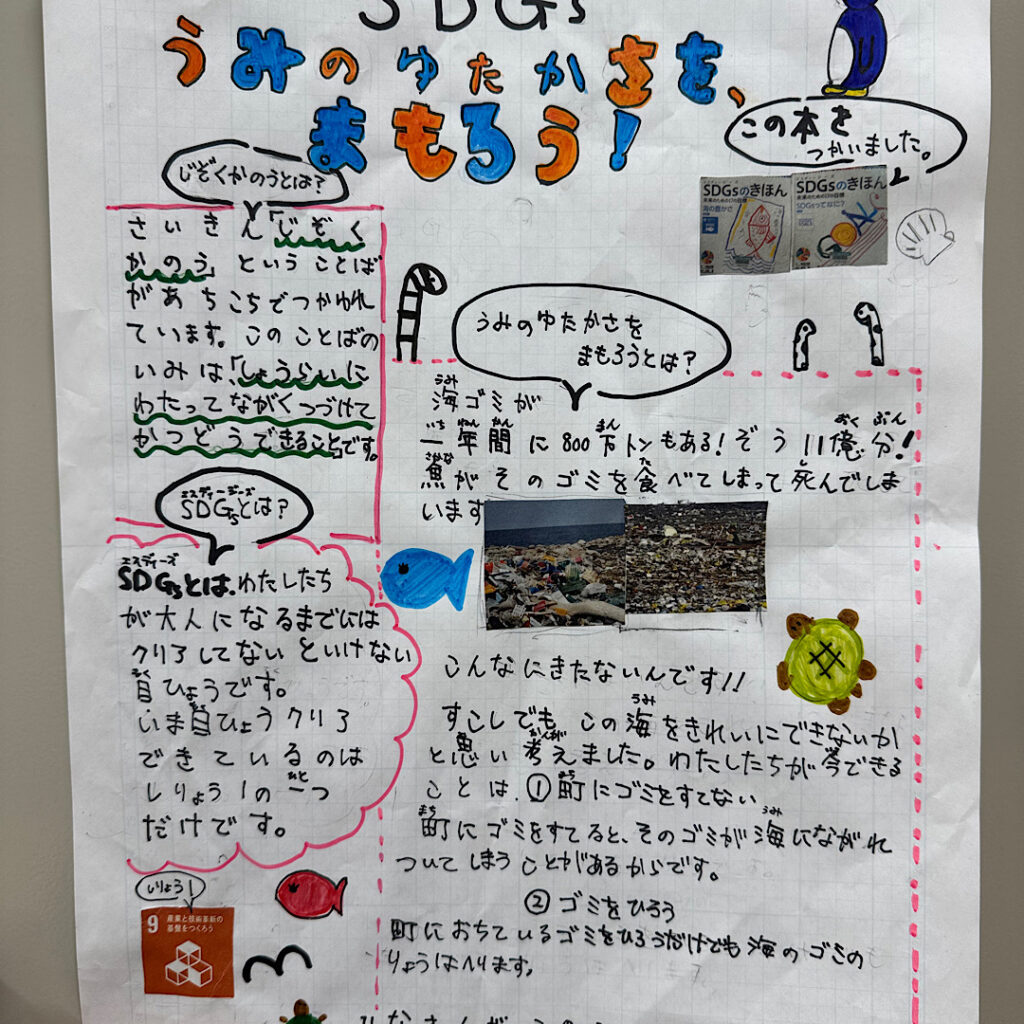 SDGs
うみのゆたかさを、
まもろう!
この本を
つかいました。
SDGsのきほん
未来のための17の目標
海の豊かさ
SDGsのきほん
未来のための17の目標
SDGsってなに?
じぞくかのうとは?
さいきん「じぞく
かのう」ということば
があちこちでつかわれ
ています。このことばの
いみは、「しょうらいに
わたってながくつづけて
かつどうできること」です。
エスディージーズ
SDGsとは?
エスディーズ
SDGsとは、わたしたち
が大人になるまでには
クリアしてないといけない
目ひょうです。
いま目ひょうクリア
できているのは
しりょう1の一つ
だけです。
しりょう1
9 産業と技術革新の
基盤をつくろう
うみのゆたかさを
まもろうとは?
海ゴミが
一年間に800万トンもある!ぞう11億分!
魚がそのゴミを食べてしまって死んでしま
います
こんなにきたないんです!!
すこしでも、この海をきれいにできないか
と思い考えました。わたしたちが今できる
ことは、①町にゴミをすてない
町にゴミをすてると、そのゴミが海にながれ
ついてしまうことがあるからです。
②ゴミをひろう
町におちているゴミをひろうだけでも海のゴミの
りょうはへります。